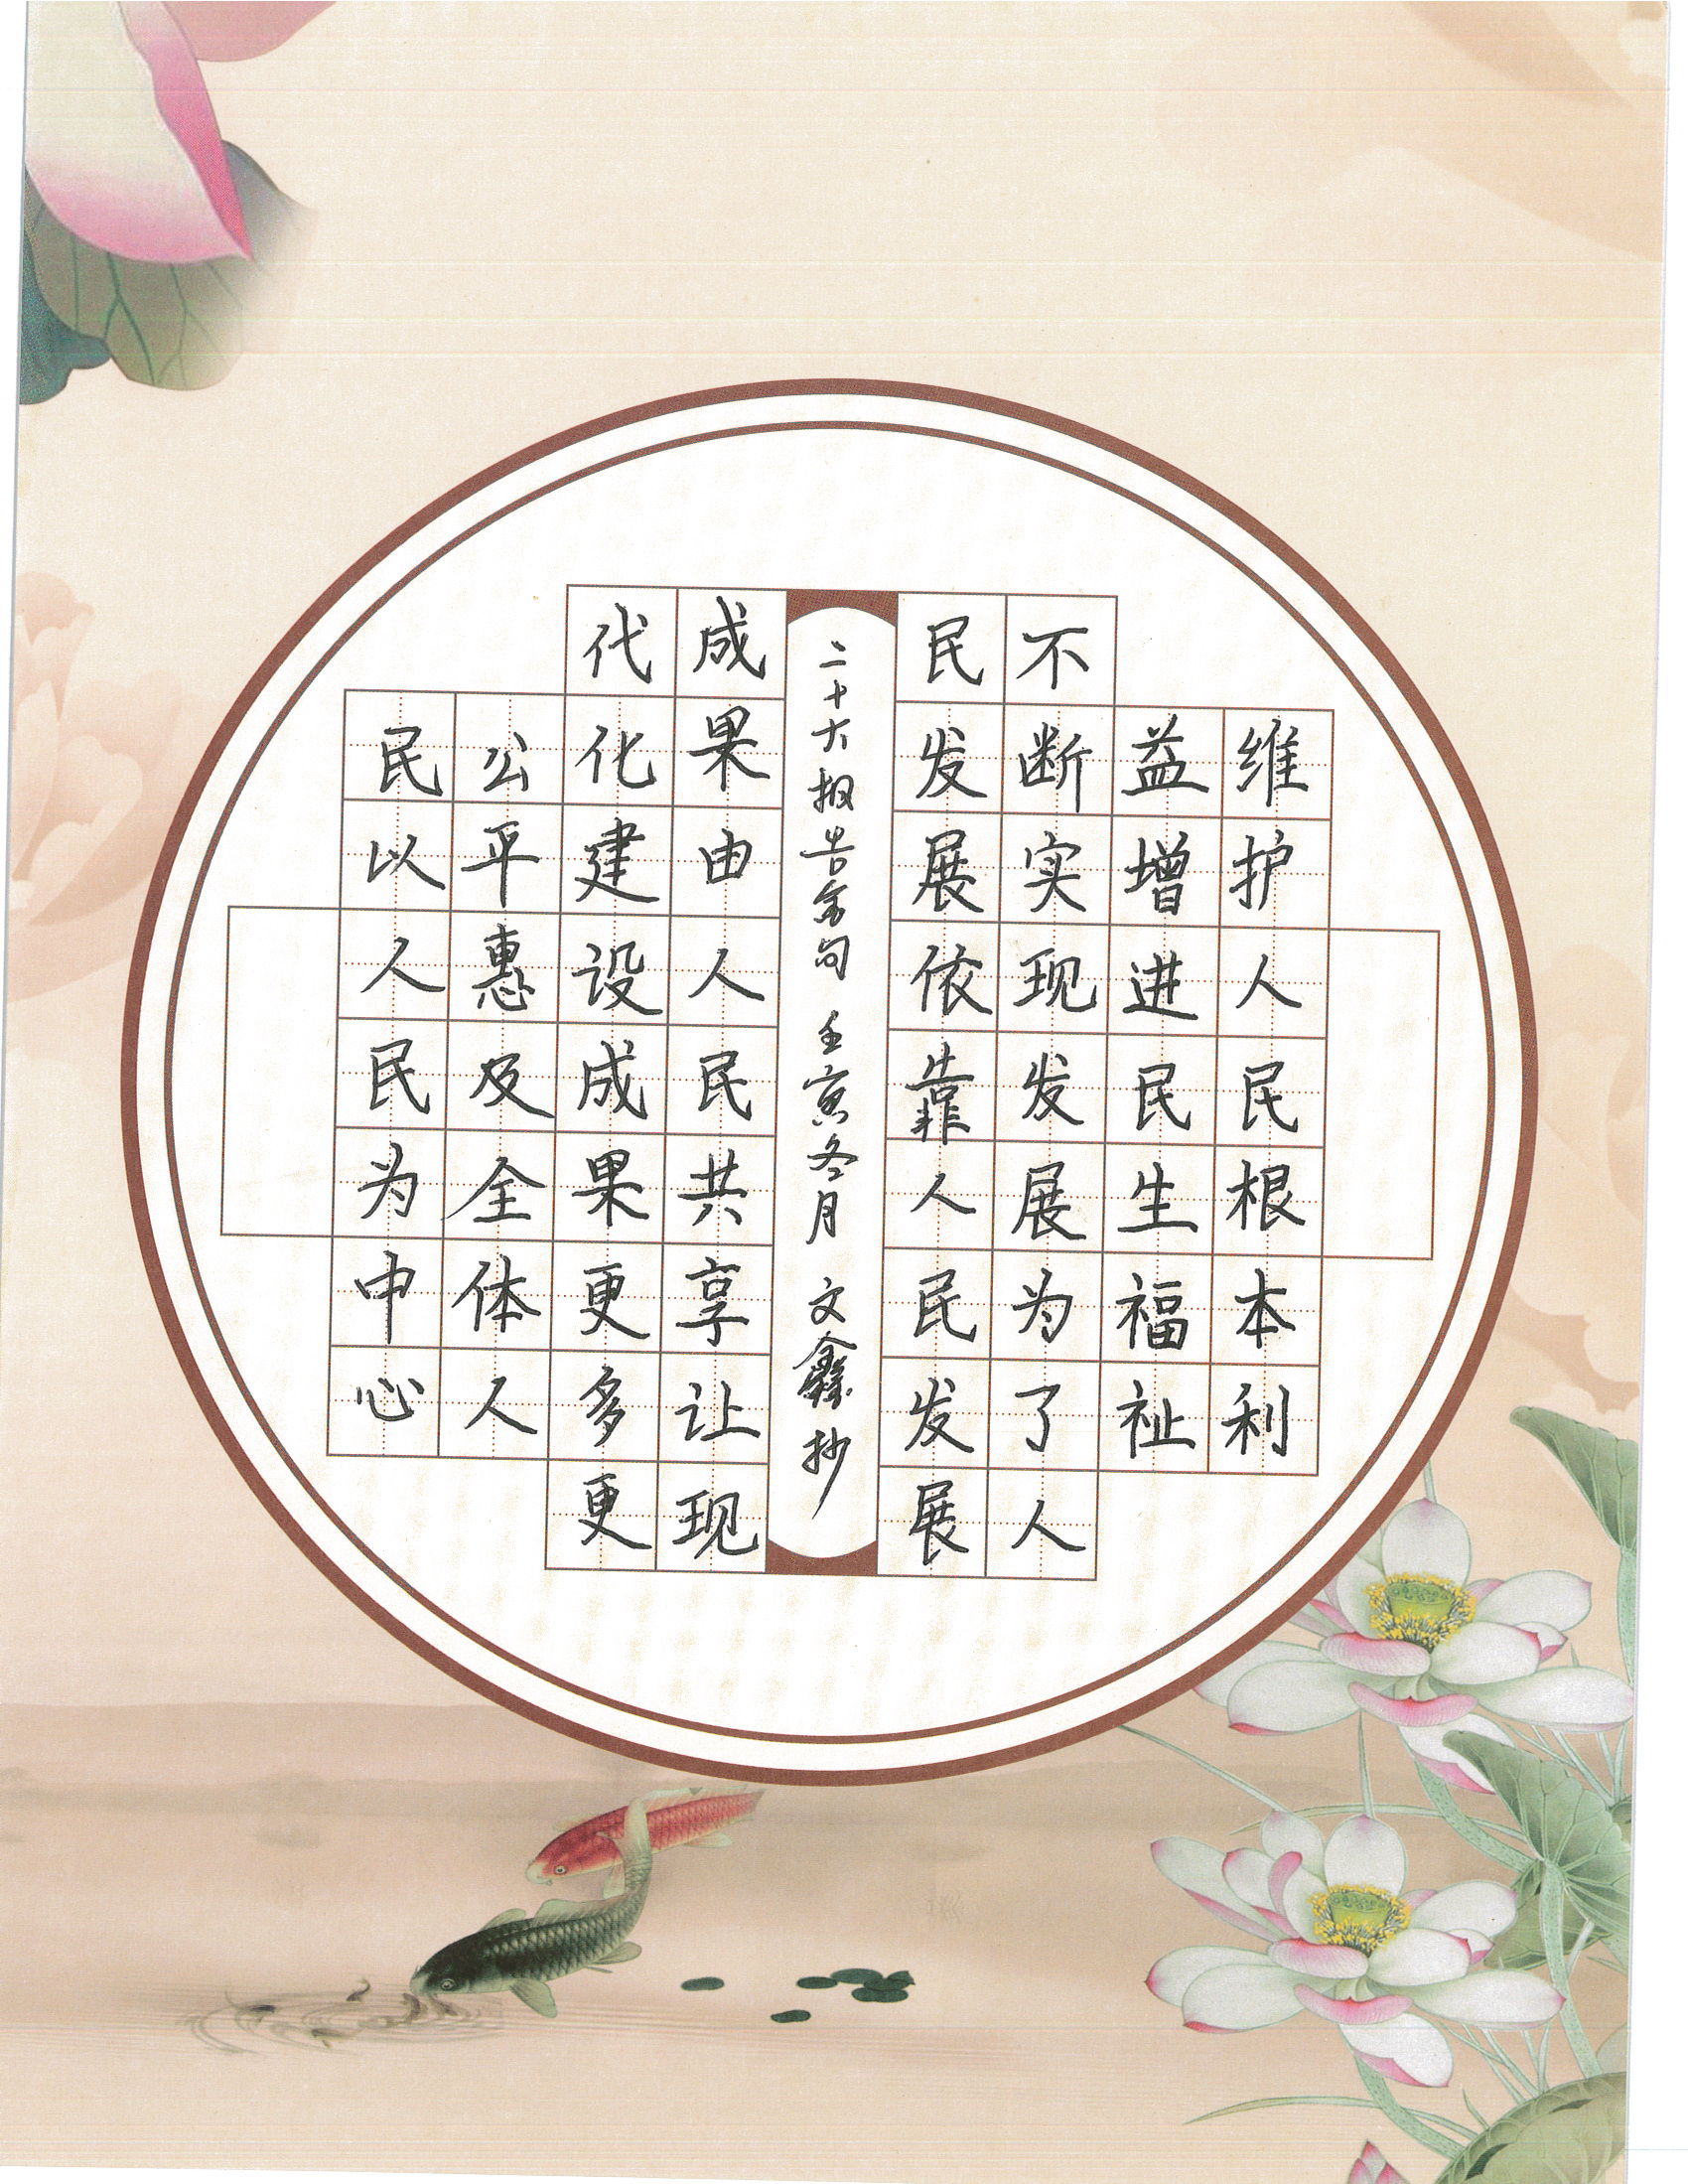 维护人民根本利
益增进民生福祉
不断实现发展为了人
民发展依靠人民发展
成果由人民共享让现
代化建设成果更多更
公平惠及全体人
民以人民为中心
二十大报告金句 壬寅冬月 文鑫抄